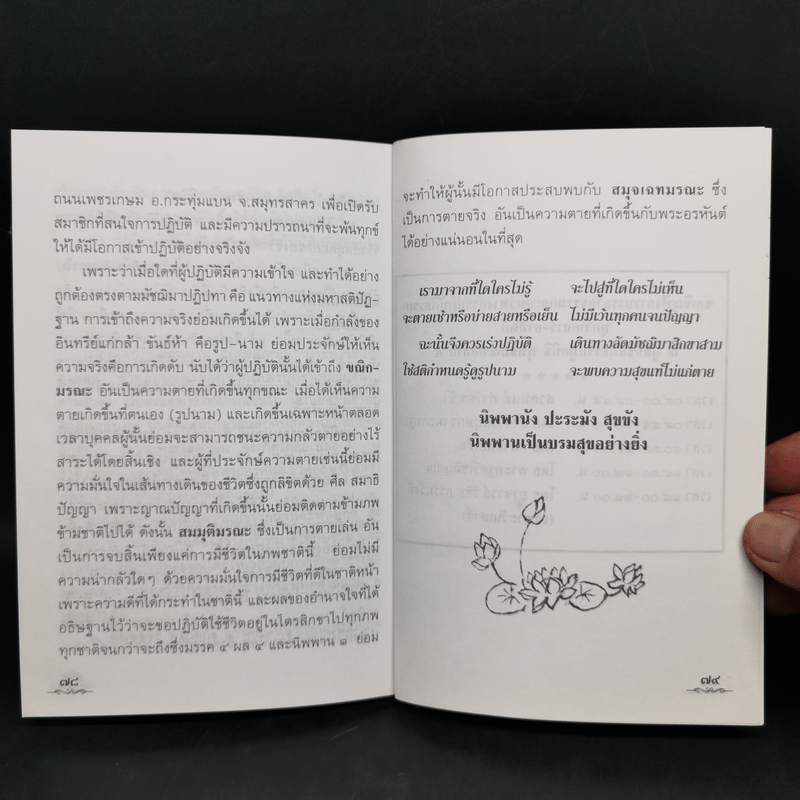 ถนนเพชรเกษม อ.กระทุ่มแบน จ.สมุทรสาคร เพื่อเปิดรับ
สมาชิกที่สนใจการปฏิบัติ และมีความปรารถนาที่จะพ้นทุกข์
ให้ได้มีโอกาสเข้าปฏิบัติอย่างจริงจัง
เพราะว่าเมื่อใดที่ผู้ปฏิบัติมีความเข้าใจ และทำได้อย่าง
ถูกต้องตรงตามมัชฌิมาปฏิปทา คือ แนวทางแห่งมหาสติปัฏ-
ฐาน การเข้าถึงความจริงย่อมเกิดขึ้นได้ เพราะเมื่อกำลังของ
อินทรีย์แก่กล้า ขันธ์ห้า คือรูป-นาม ย่อมประจักษ์ให้เห็น
ความจริงคือการเกิดดับ นับได้ว่าผู้ปฏิบัตินั้นได้เข้าถึง ขณิก-
มรณะ อันเป็นความตายที่เกิดขึ้นทุกขณะ เมื่อได้เห็นความ
ตายเกิดขึ้นที่ตนเอง (รูปนาม) และเกิดขึ้นเฉพาะหน้าตลอด
เวลาบุคคลผู้นั้นย่อมจะสามารถชนะความกลัวตายอย่างไร้
สาระได้โดยสิ้นเชิง และผู้ที่ประจักษ์ความตายเช่นนี้ย่อมมี
ความมั่นใจในเส้นทางเดินของชีวิตซึ่งถูกลิขิตด้วย ศีล สมาธิ
ปัญญา เพราะญาณปัญญาที่เกิดขึ้นนั้นย่อมติดตามข้ามภพ
ข้ามชาติไปได้ ดังนั้น สมมุติมรณะ ซึ่งเป็นการตายเล่น อัน
เป็นการจบสิ้นเพียงแค่การมีชีวิตในภพชาตินี้ ย่อมไม่มี
ความน่ากลัวใดๆ ด้วยความมั่นใจการมีชีวิตที่ดีในชาติหน้า
เพราะความดีที่ได้กระทำในชาตินี้ และผลของอำนาจใจที่ได้
อธิษฐานไว้ว่าจะขอปฏิบัติใช้ชีวิตอยู่ในไตรสิกขาไปทุกภพ
ทุกชาติจนกว่าจะถึงซึ่งมรรค ๔ ผล ๔ และนิพพาน ๑ ย่อม
๗๘
จะทำให้ผู้นั้นมีโอกาสประสบพบกับ สมุจเฉทมรณะ ซึ่ง
เป็นการตายจริง อันเป็นความตายที่เกิดขึ้นกับพระอรหันต์
ได้อย่างแน่นอนในที่สุด
เรามาจากที่ใดใครไม่รู้ จะไปสู่ที่ใดใครไม่เห็น
จะตายเช้าหรือบ่ายสายหรือเย็น ไม่มีเว้นทุกคนจนปัญญา
ฉะนั้นจึงควรเร่งปฏิบัติ เดินทางลัดมัชฌิมาสิกขาสาม
ใช้สติกำหนดรู้ดูรูปนาม จะพบความสุขแท้ไม่แก่ตาย
นิพพานัง ปะระมัง สุขขัง
นิพพานเป็นบรมสุขอย่างยิ่ง
๗๙